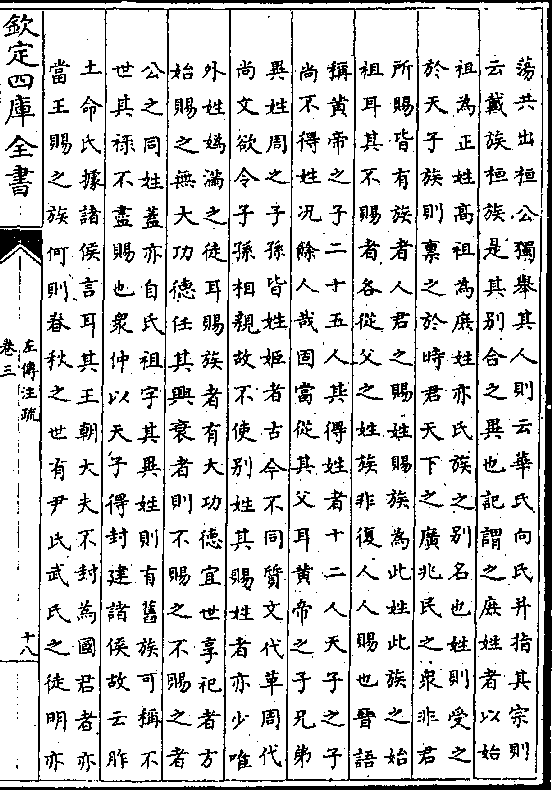 蕩共出桓公獨舉其人則云華氏向氏并指其宗則
云戴族桓族是其別合之異也記謂之庶姓者以始
祖為正姓高祖為庶姓亦氏族之別名也姓則受之
於天子族則稟之於時君天下之廣兆民之衆非君
所賜皆有族者人君之賜姓賜族為此姓此族之始
祖耳其不賜者各從父之姓族非復人人賜也晉語
稱黃帝之子二十五人其得姓者十二人天子之子
尚不得姓况餘人哉固當從其父耳黃帝之子兄弟
異姓周之子孫皆姓姬者古今不同質文代革周代
尚文欲令子孫相親故不使別姓其賜姓者亦少唯
外姓媯滿之徒耳賜族者有大功德宜世享祀者方
始賜之無大功德任其興衰者則不賜之不賜之者
公之同姓蓋亦自氏祖字其異姓則有舊族可稱不
世其祿不盡賜也衆仲以天子得封建諸侯故云胙
土命氏據諸侯言耳其王朝大夫不封為國君者亦
當王賜之族何則春秋之世有尹氏武氏之徒明亦
欽定四庫全書
左傳注疏
卷三
十八